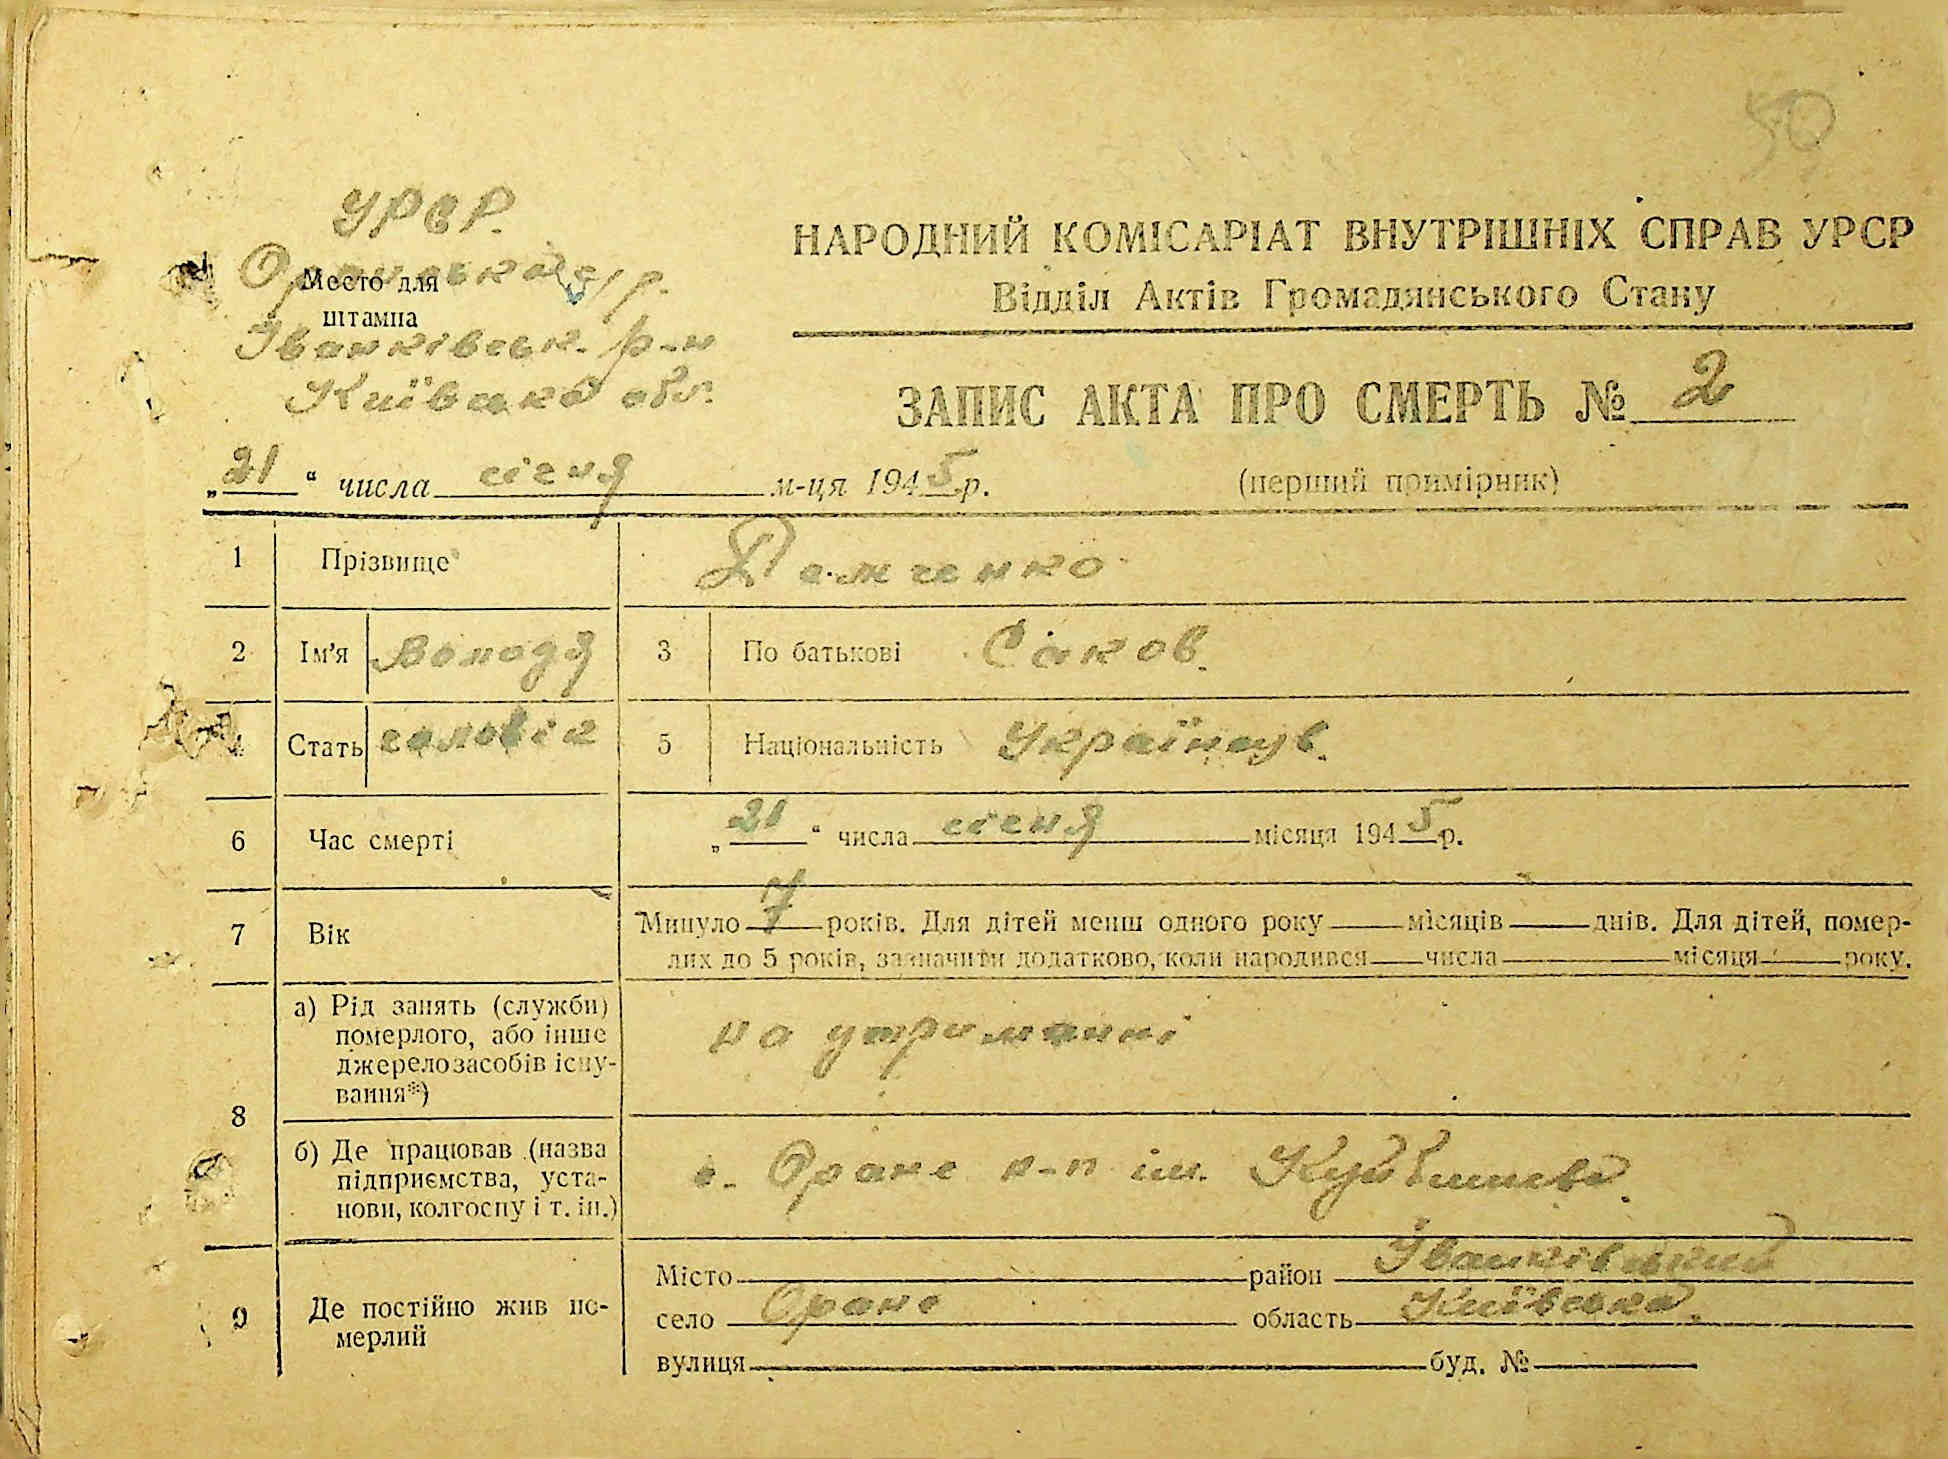 50
УРСР.
Оранська с/р.
Место для
штампа
Іванківськ. р-н
Київська обл.
НАРОДНИЙ КОМІСАРІАТ ВНУТРІШНІХ СПРАВ УРСР
Відділ Актів Громадянського Стану
ЗАПИС АКТА ПРО СМЕРТЬ № 2
„21“ числа січня м-ця 1945 р. (перший примірник)
1 Прізвище Демченко
2 Ім’я Володя 3 По батькові Саков.
4 Стать чоловік 5 Національність Українець.
6 Час смерті „21“ числа січня місяця 1945 р.
7 Вік Минуло 7 років. Для дітей менш одного року місяців днів. Для дітей, помер-
лих до 5 років, зазначити додатково, коли народився числа місяця року.
8 а) Рід занять (служби)
померлого, або інше
джерело засобів існу-
вання*)
на утриманні
б) Де працював (назва
підприємства, уста-
нови, колгоспу і т. ін.)
с. Оране к-п ім. Куйбишева.
9 Де постійно жив по-
мерлий
Місто район Іванківський
село Оране область Київська.
вулиця буд. №